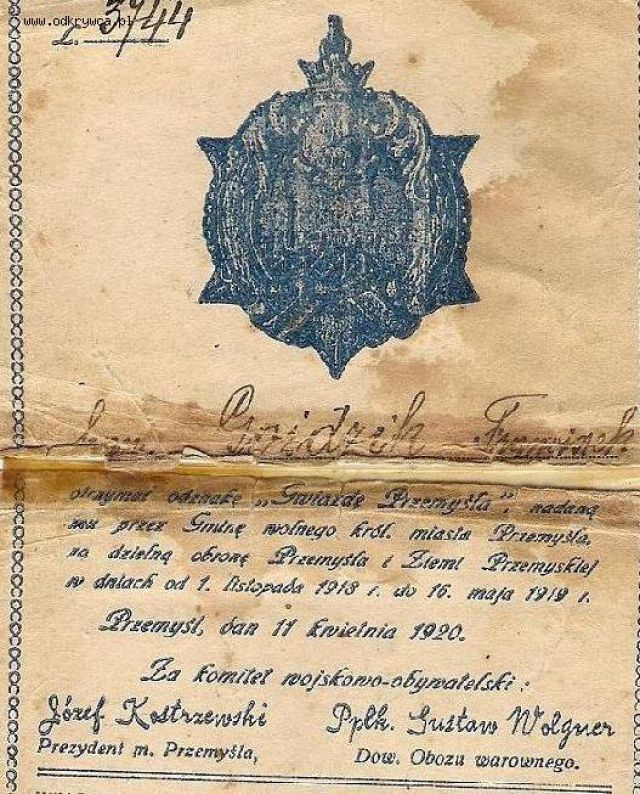 www.odkrywca.pl
L. 3944
Gwidzik Franciszek
otrzymał odznakę „Gwiazdę Przemyśla”, nadaną
mu przez Gminę wolnego król. miasta Przemyśla,
za dzielną obronę Przemyśla i Ziemi Przemyskiej
w dniach od 1. listopada 1918 r. do 16. maja 1919 r.
Przemyśl, dan 11 kwietnia 1920.
Za komitet wojskowo-obywatelski:
Józef Kostrzewski Ppłk. Gustaw Wolgner
Prezydent m. Przemyśla, Dow. Obozu warownego.